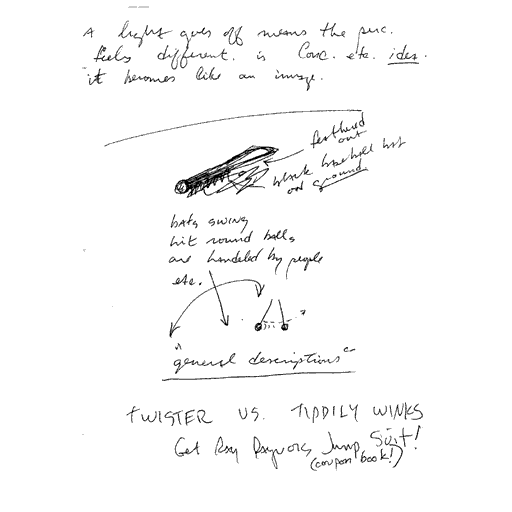 A light goes off means the perc.
feels different. is Conc. etc. idea.
it becomes like an image.
feathered
out
black baseball bat
on ground
bats swing
hit round balls
are handeled by people
etc.
?
"general descriptions"
TWISTER VS. TIDDILY WINKS
Get Ray Jump Suit!
(coupon book!)